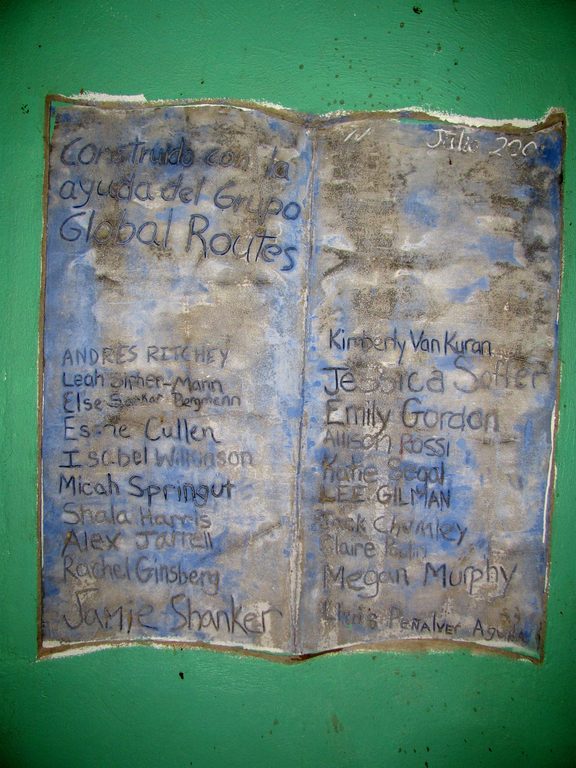 Construido con la
ayuda del Grupo
Global Routes
ANDRES RITCHEY
Leah -Mann
Else
Cullen
Isabel Wilkinson
Micah Springut
Shala Harris
Alex Jarrell
Rachel Ginsberg
Jamie Shanker
Julio
Kimberly Van Kuran
Jessica
Emily Gordon
Allison Rossi
Katie Segal
LEE GILMAN
Chumley
Claire
Megan Murphy
Peñalver